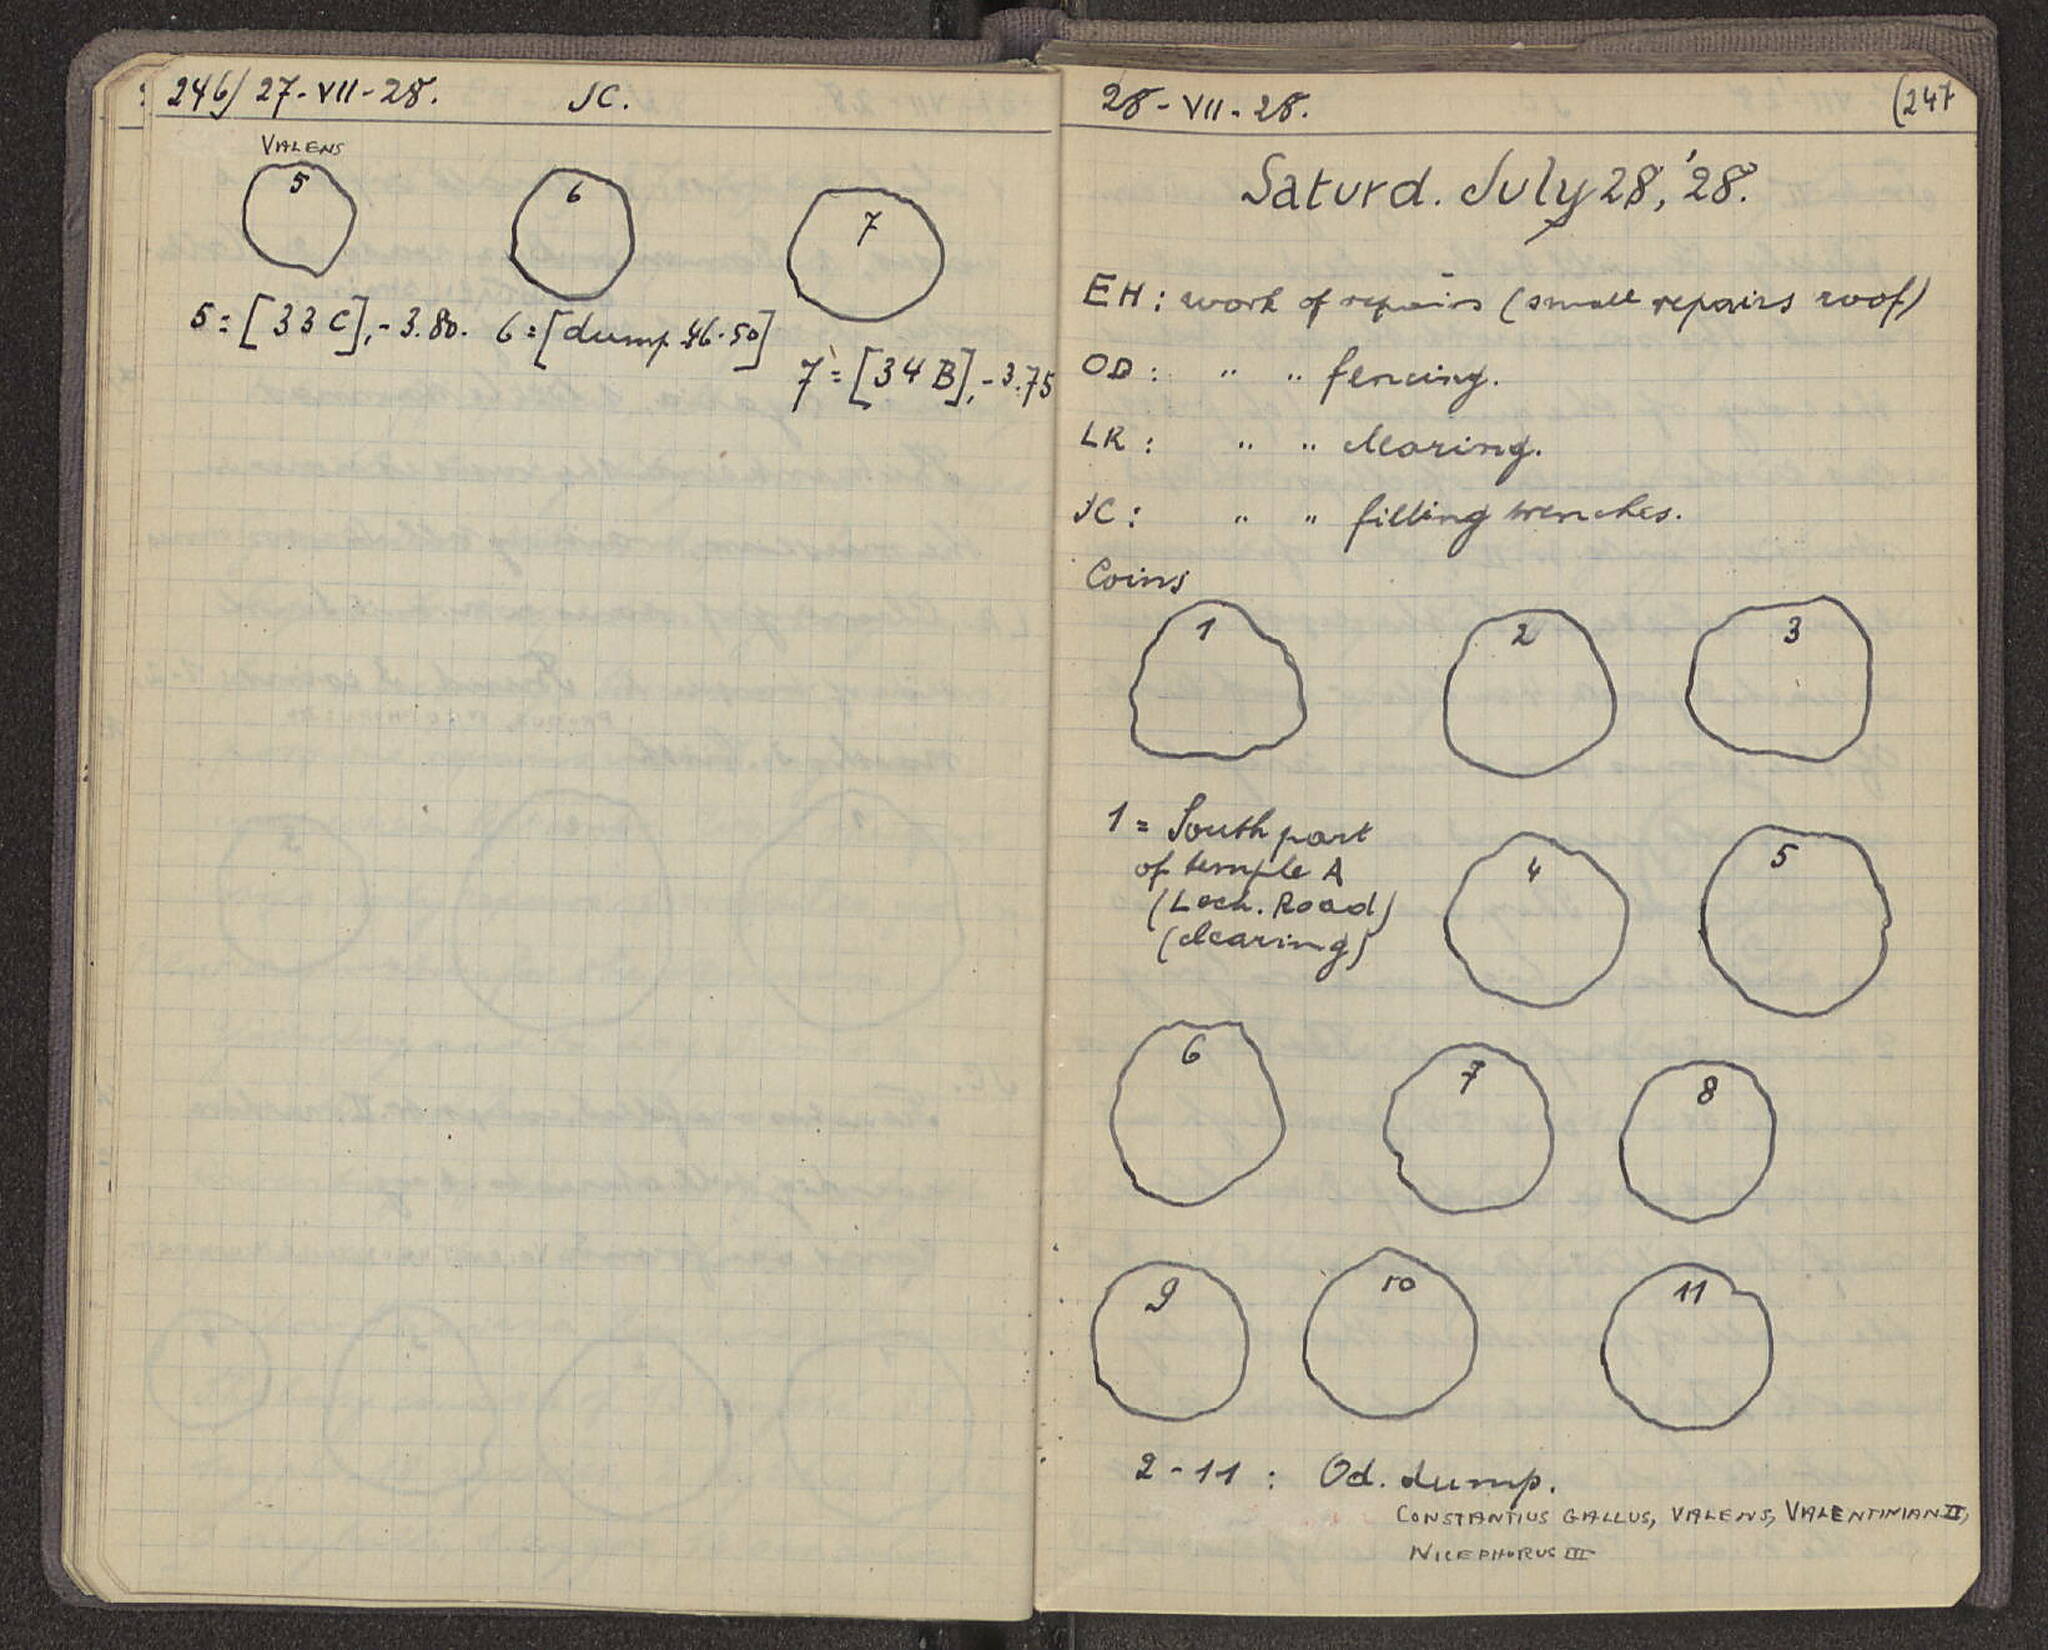 246/ 27-VII-28. JC.
VALENS
5 6 7
5=[33C],-3.80. 6=[dump 46.50]
7=[34B],-3.75
28-VII-28. (247
Saturd. July 28, '28.
EH: work of repairs (small repairs roof)
OD: " " fencing.
LR: " " clearing.
JC: " " filling trenches.
Coins
1 2 3
1 = South part
of temple A
(Lech. Road)
(clearing)
4 5
6 7 8
9 10 11
2-11: Od. dump.
CONSTANTIUS GALLUS, VALENS, VALENTINIAN II,
NICEPHORUS III